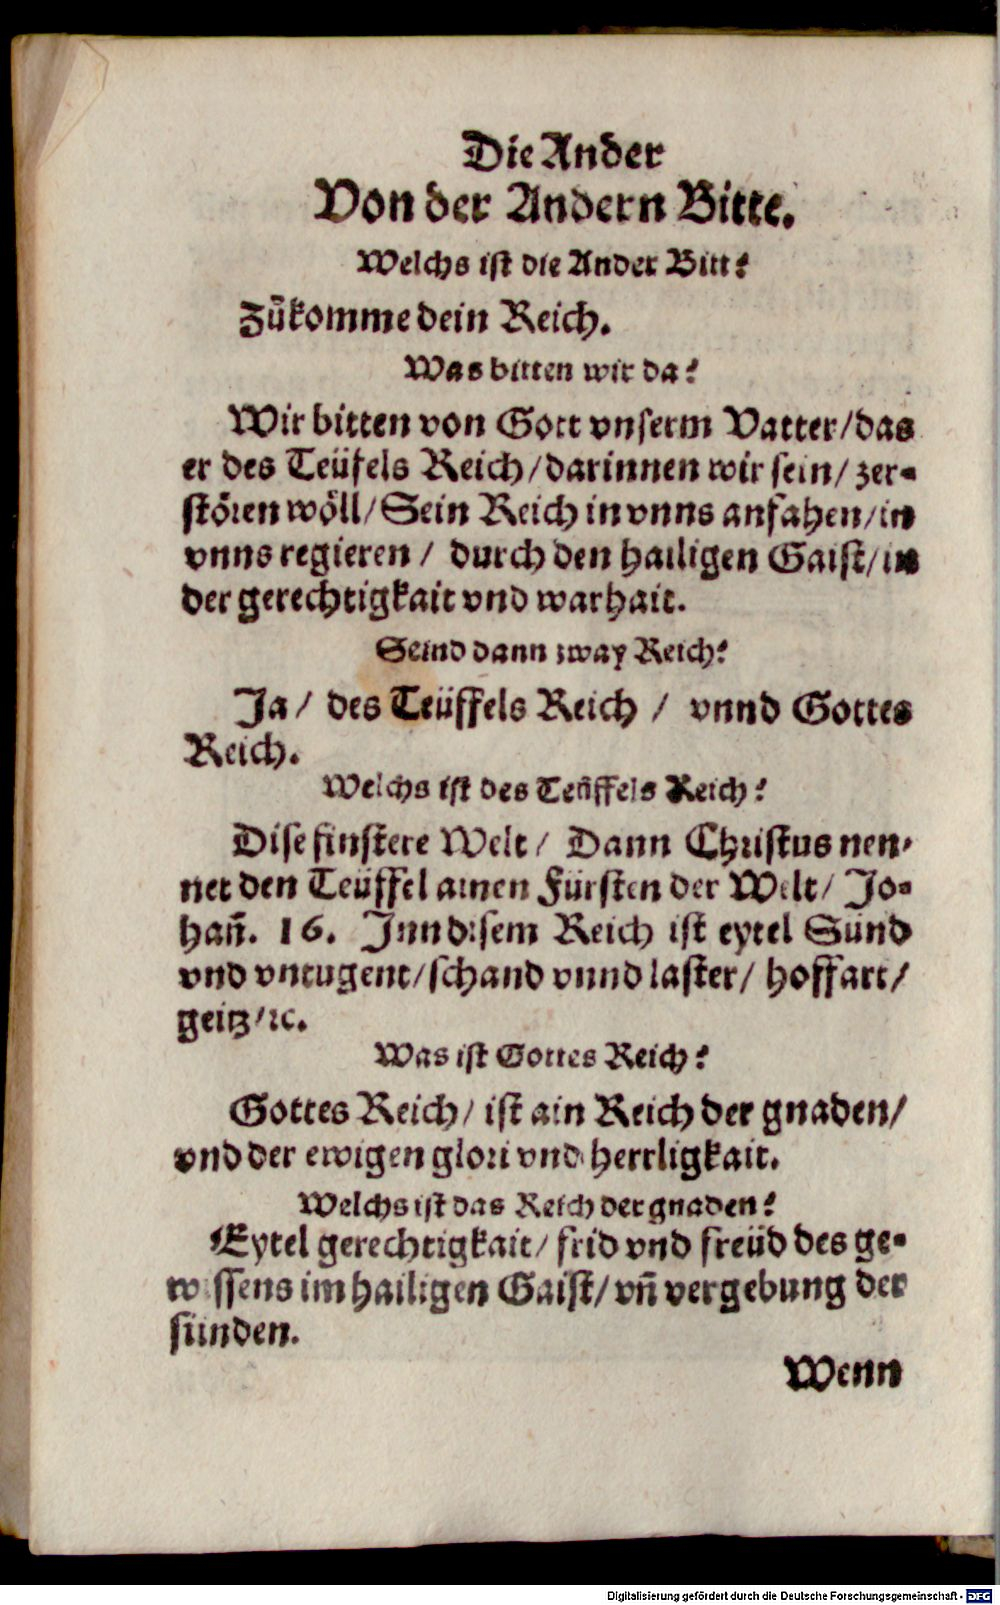 Die Ander
Von der Andern Bitte.
Welchs ist die Ander Bitt?
Zůkomme dein Reich.
Was bitten wir da?
Wir bitten von Gott vnserm Vatter/das
er des Teüfels Reich/darinnen wir sein/ zer-
stören wöll/Sein Reich in vnns anfahen/in
vnns regieren / durch den hailigen Gaist/in
der gerechtigkait vnd warhait.
Seind dann zway Reich?
Ja / des Teüffels Reich / vnnd Gottes
Reich.
Welchs ist des Teüffels Reich?
Dise finstere Welt / Dann Christus nen-
net den Teüffel ainen Fürsten der Welt/ Jo-
hañ. 16. Jnn disem Reich ist eytel Sünd
vnd vntugent/schand vnnd laster/ hoffart/
geitz/ꝛc.
Was ist Gottes Reich?
Gottes Reich/ ist ain Reich der gnaden/
vnd der ewigen glori vnd herrligkait.
Welchs ist das Reich der gnaden?
Eytel gerechtigkait/ frid vnd freüd des ge-
wissens im hailigen Gaist/ vñ vergebung der
sünden.
Wenn
Digitalisierung gefördert durch die Deutsche Forschungsgemeinschaft - DFG